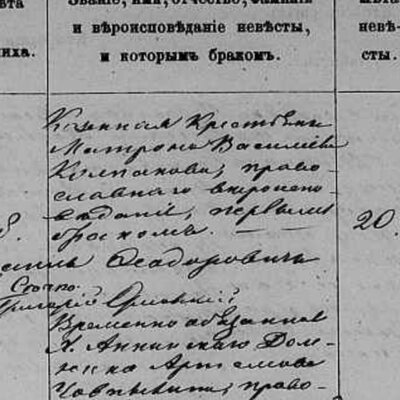 ѣта
Званіе, имя, отчество, фамилія
и вѣроисповѣданіе невѣсты,
и которымъ бракомъ.
невѣ-
ниха.
сты.
Казенная Крестьянка
Матрона Васильева
Колпакова, право-
славнаго вѣроиспо-
вѣданія, первымъ
бракомъ.
8.
20.
Ѳеодоровичъ
Григорій
Временно обязанная
Х. Аннинскаго Дом-
на Артемова
право-